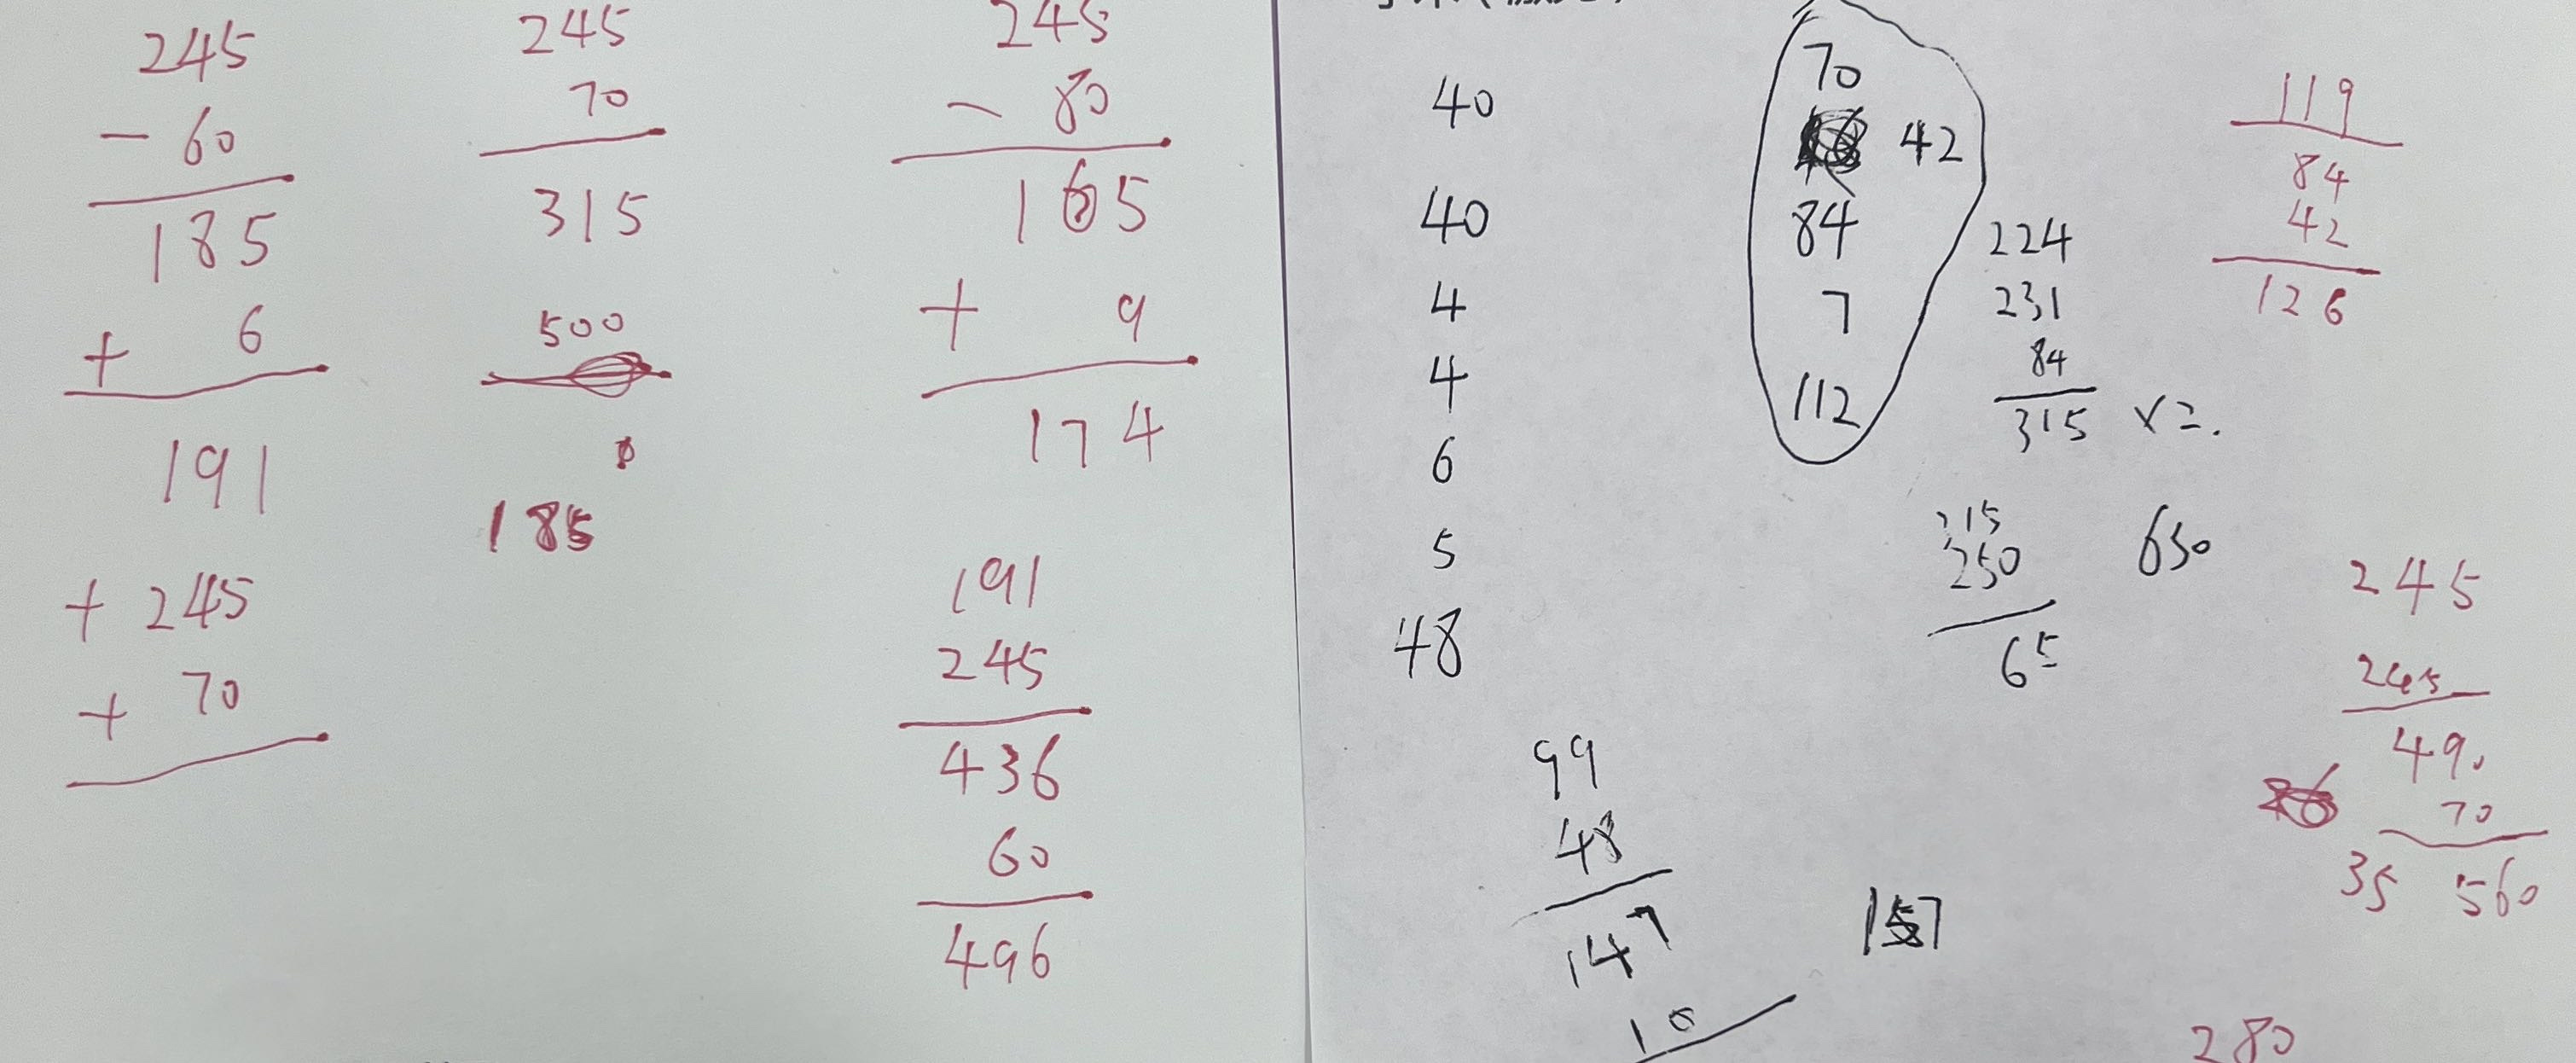 245
- 60
185
+ 6
191
+ 245
+ 70
245
70
315
500
185
245
- 80
165
+ 9
174
191
245
436
60
496
40
40
4
4
6
5
48
99
48
147
10
157
70
42
84
7
112
224
231
84
315 x 2.
315
250
65
630
119
84
42
126
245
245
490
70
35 560
280